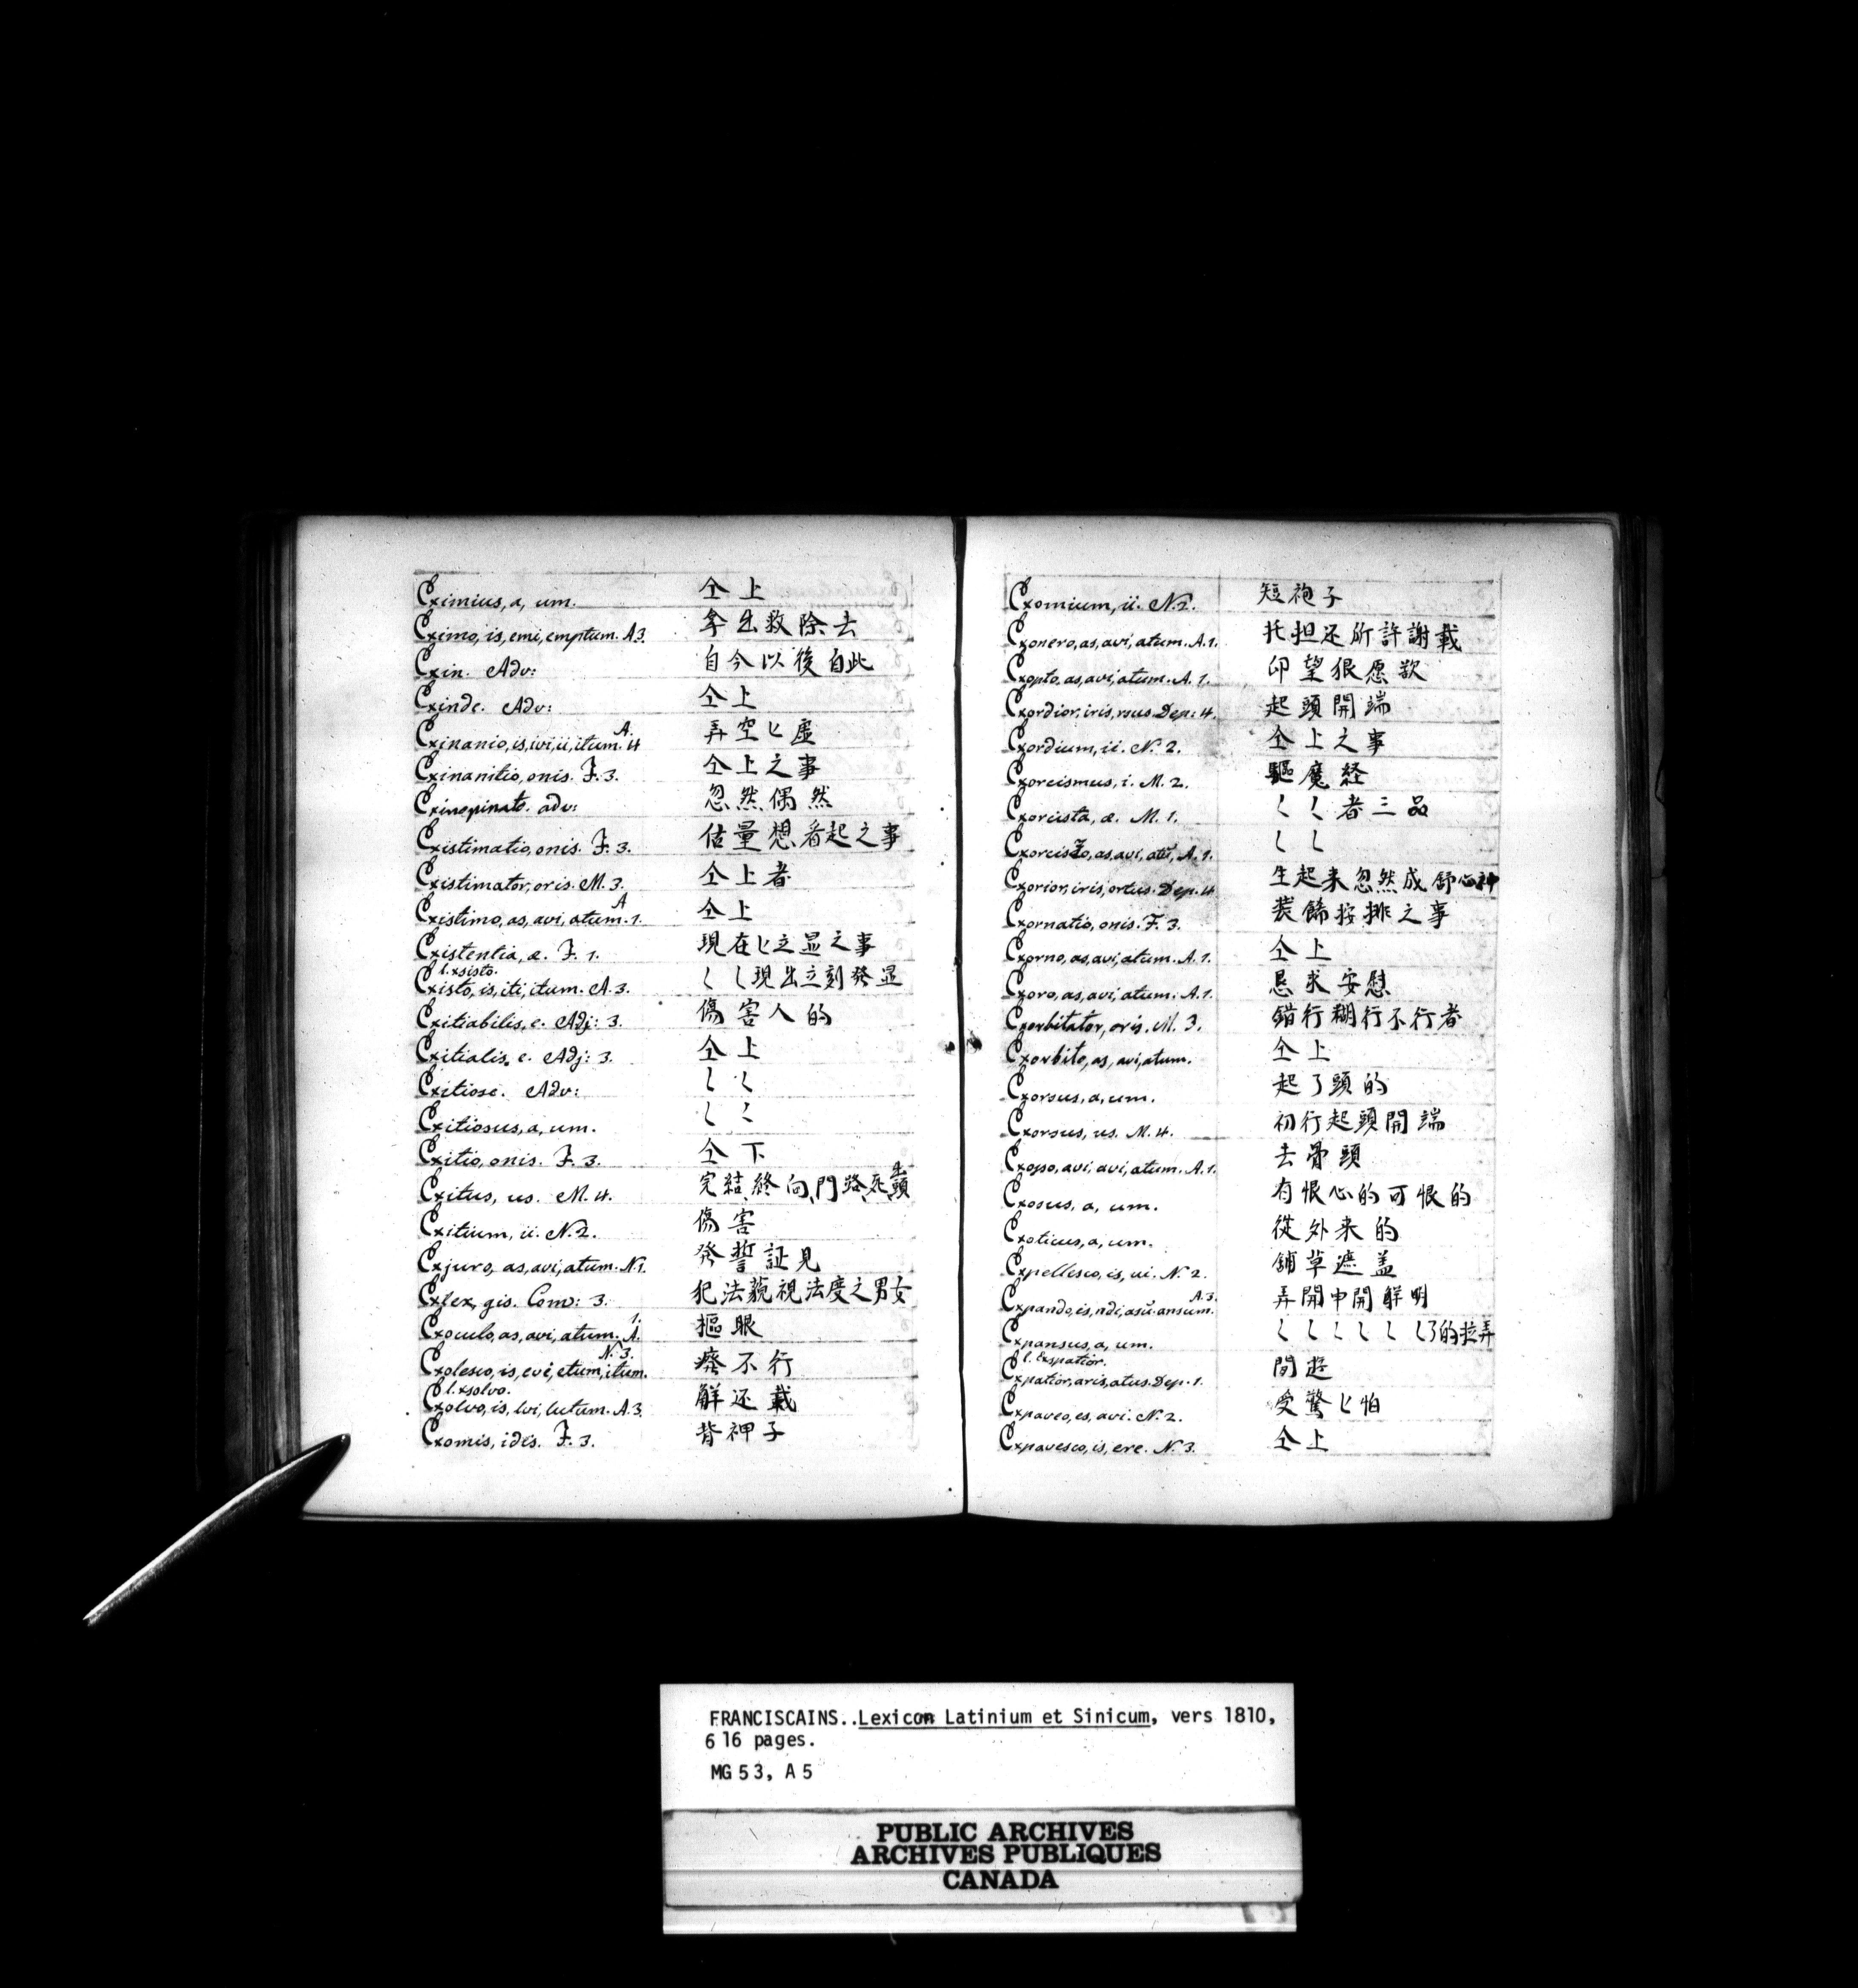 Eximius, a, um. 仝上
Eximo, is, emi, emptum. A.3. 拿出救除去
Exin. Adv: 自今以後自此
Exinde. Adv: 仝上
Exinanio, is, ivi, ii, itum. A. 4 弄空匕虛
Exinanitio, onis. F. 3. 仝上之事
Exinopinato. adv: 忽然偶然
Existimatio, onis. F. 3. 估量想看起之事
Existimator, oris. M. 3. 仝上者
Existimo, as, avi, atum. A 1. 仝上
Existentia, æ. F. 1. 現在匕立显之事
l. exsisto.
Existo, is, iti, itum. A. 3. 乀乀現出立刻發显
Exitiabilis, e. Adj: 3. 傷害人的
Exitialis, e. Adj: 3. 仝上
Exitiose. Adv: 乀乀
Exitiosus, a, um. 乀乀
Exitio, onis. F. 3. 仝下
Exitus, us. M. 4. 完結、終向、門路、死、頭
Exitium, ii. N. 2. 傷害
Exjuro, as, avi, atum. N. 1. 發誓証見
Exlex, gis. Com: 3. 犯法藐視法度之男女
Exoculo, as, avi, atum. A. 1. 摳眼
Exolesco, is, evi, etum, itum. N. 3. 癈不行
l. exsolvo.
Exolvo, is, lvi, lutum. A. 3. 觧还載
Exomis, idis. F. 3. 背衶子
Exomium, ii. N. 2. 短袍子
Exonero, as, avi, atum. A. 1. 托担还所許謝載
Exopto, as, avi, atum. A. 1. 卬望狠愿歖
Exordior, iris, rsus. Dep: 4. 起頭開端
Exordium, ii. N. 2. 仝上之事
Exorcismus, i. M. 2. 驅魔経
Exorcista, æ. M. 1. 乀乀者三品
Exorcizo, as, avi, atū, A. 1. 乀乀
Exorior, iris, ortus. Dep. 4 生起来忽然成舒心神
Exornatio, onis. F. 3. 装飾按排之事
Exorno, as, avi, atum. A. 1. 仝上
Exoro, as, avi, atum. A. 1. 恳求安慰
Exorbitator, oris. M. 3. 錯行糊行不行者
Exorbito, as, avi, atum. 仝上
Exorsus, a, um. 起了頭的
Exorsus, us. M. 4. 初行起頭開端
Exosso, avi, avi, atum. A. 1. 去骨頭
Exosus, a, um. 有恨心的可恨的
Exoticus, a, um. 從外来的
Expellesco, is, ui. N. 2. 舖草遮盖
Expando, is, ndi, asū. ansum. A. 3. 弄開中開觧明
Expansus, a, um. 乀乀乀乀乀乀了的拉弄
l. Exspatior.
Expatior, aris, atus. Dep. 1. 間遊
Expaveo, es, avi. N. 2. 受驚匕怕
Expavesco, is, ere. N. 3. 仝上
FRANCISCAINS..Lexicon Latinium et Sinicum, vers 1810,
616 pages.
MG 53, A 5
PUBLIC ARCHIVES
ARCHIVES PUBLIQUES
CANADA